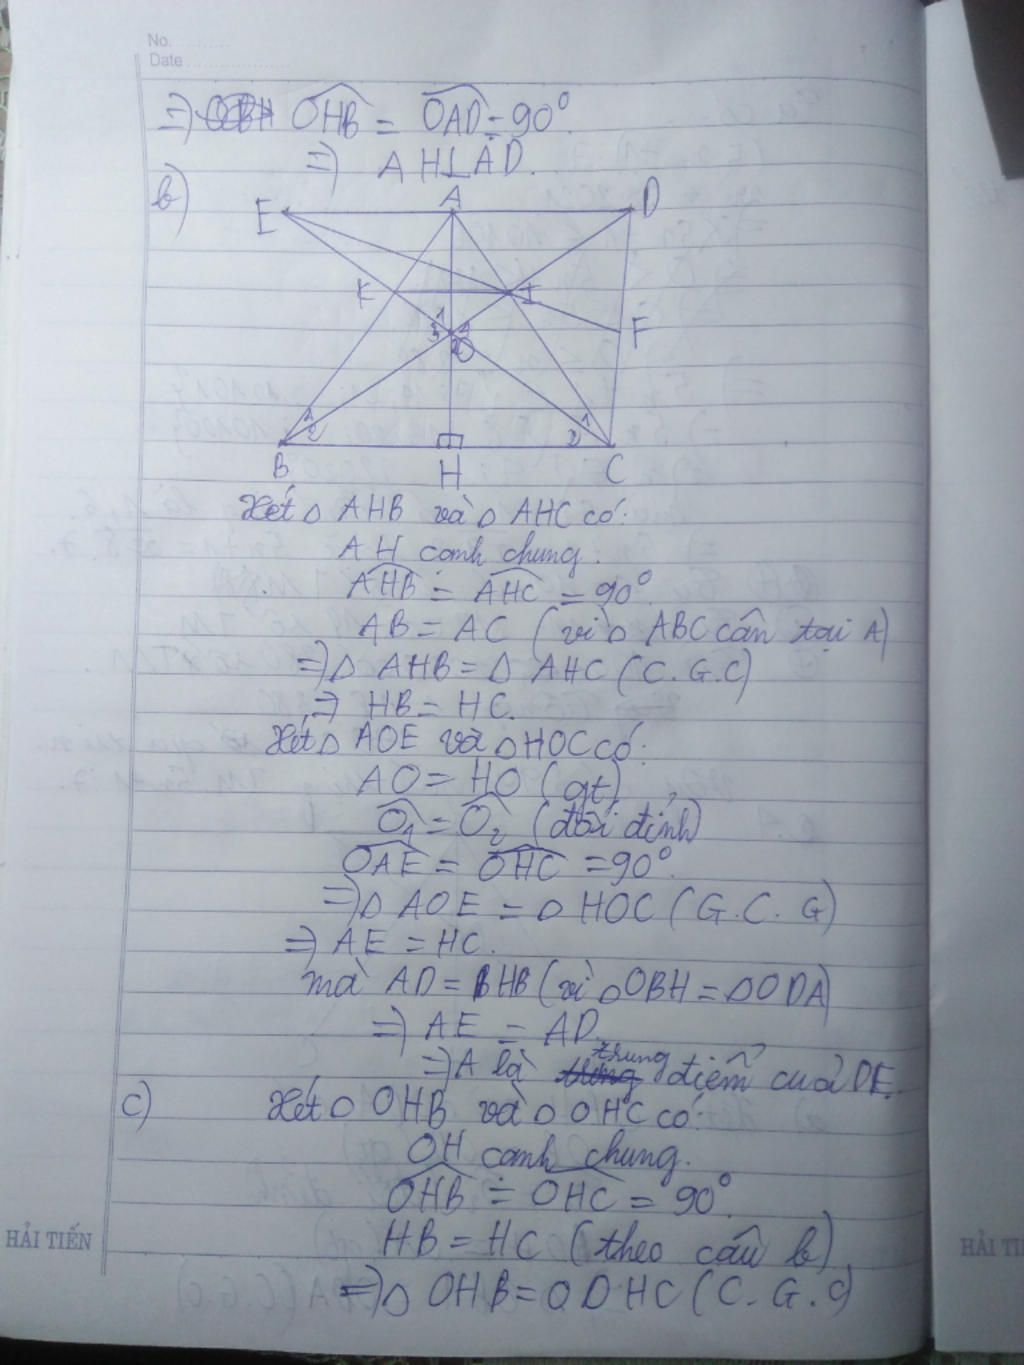 No.
Date
=> OHB = OAD = 90°
=> AH⊥AD.
b)
E A D
K I
1
3 2 F
O
1 1
2 2
B H C
Xét Δ AHB và Δ AHC có:
AH cạnh chung.
AHB = AHC = 90°
AB = AC (vì Δ ABC cân tại A)
=> Δ AHB = Δ AHC (C.G.C)
=> HB = HC.
Xét Δ AOE và Δ HOC có:
AO = HO (gt)
O1 = O2 (đối đỉnh)
OAE = OHC = 90°.
=> Δ AOE = Δ HOC (G.C.G)
=> AE = HC.
mà AD = HB (vì Δ OBH = Δ ODA)
=> AE = AD.
=> A là trung điểm của DE.
c) Xét Δ OHB và Δ OHC có:
OH cạnh chung.
OHB = OHC = 90°
HB = HC (theo câu b)
=> Δ OHB = O D HC (C.G.C)
HẢI TIẾN
HẢI TI